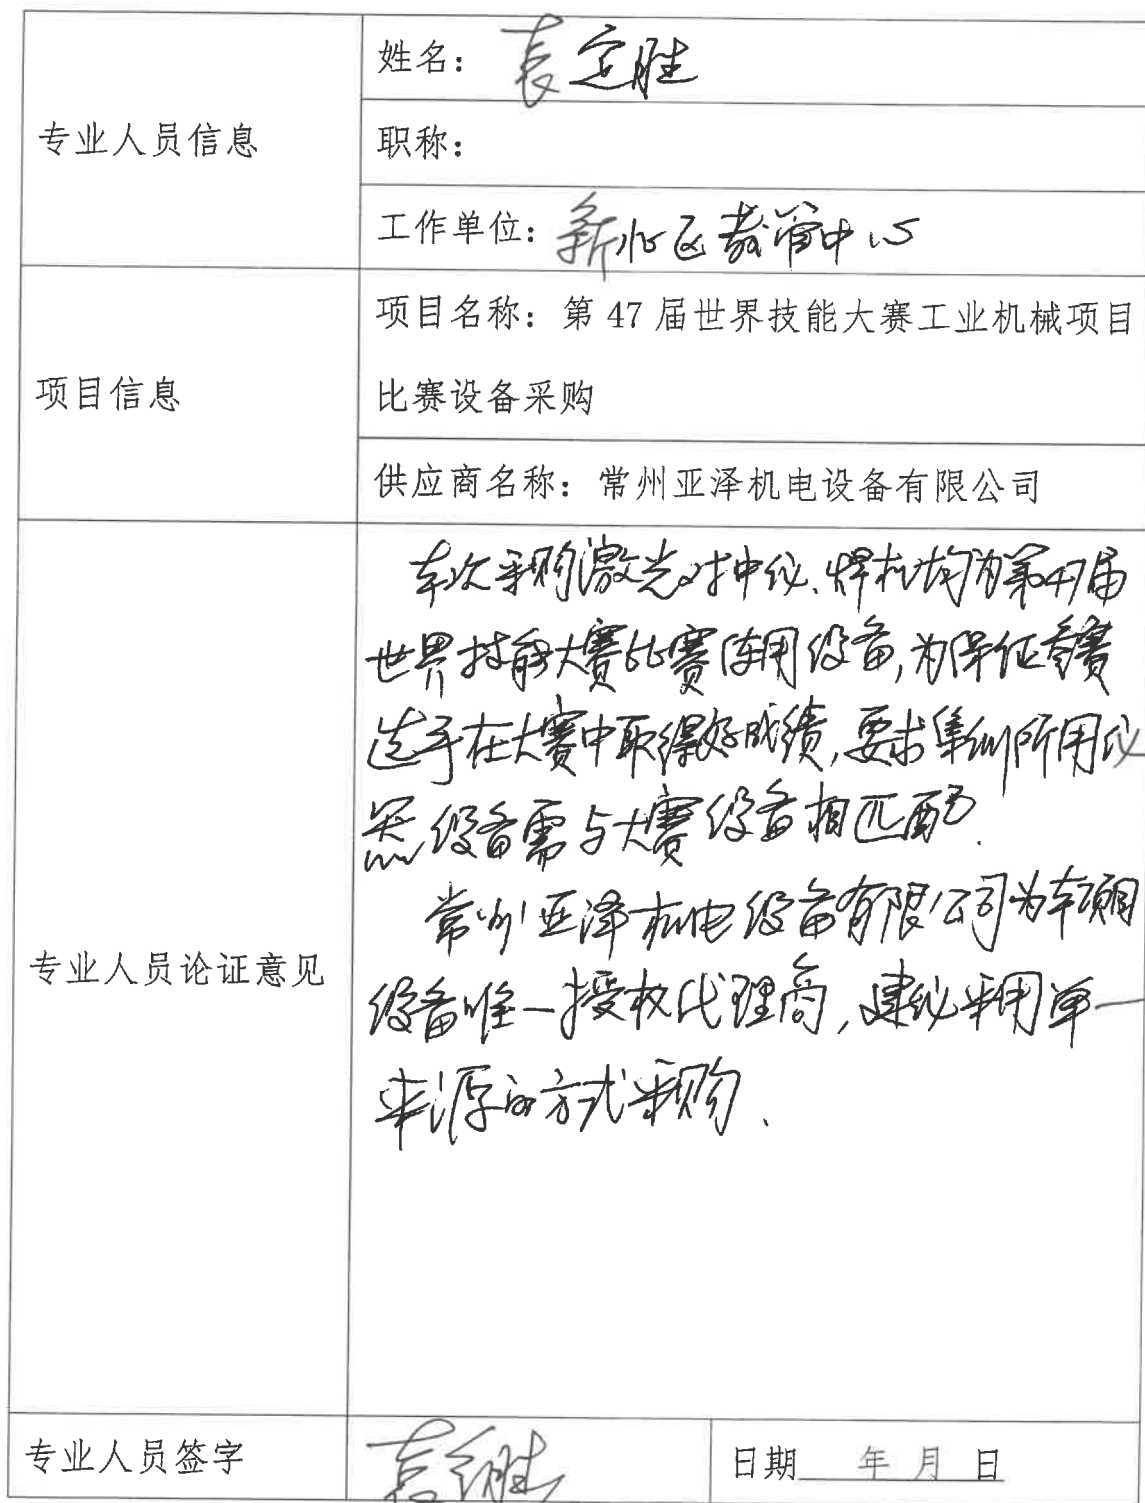 专业人员信息
姓名：袁定胜
职称：
工作单位：新北区教管中心
项目信息
项目名称：第 47 届世界技能大赛工业机械项目
比赛设备采购
供应商名称：常州亚泽机电设备有限公司
专业人员论证意见
本次采购激光对中仪、焊机均为第47届
世界技能大赛比赛使用设备,为保证参赛
选手在大赛中取得好成绩,要求集训所用仪
器设备需与大赛设备相匹配.
常州亚泽机电设备有限公司为本项目
设备唯一授权代理商,建议采用单一
来源的方式采购.
专业人员签字
袁定胜
日期 年 月 日